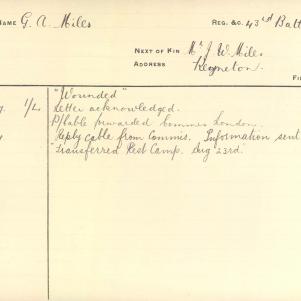 NAME G. A. Miles
REG. &C. 43rd Batt
NEXT OF KIN Mr J. W. Miles
ADDRESS Keyneton.
"Wounded"
1/L Letter acknowledged.
P/Cable forwarded Commrs London.
Reply cable from Commis. Information sent
"Transferred Rest Camp. Aug 23rd"